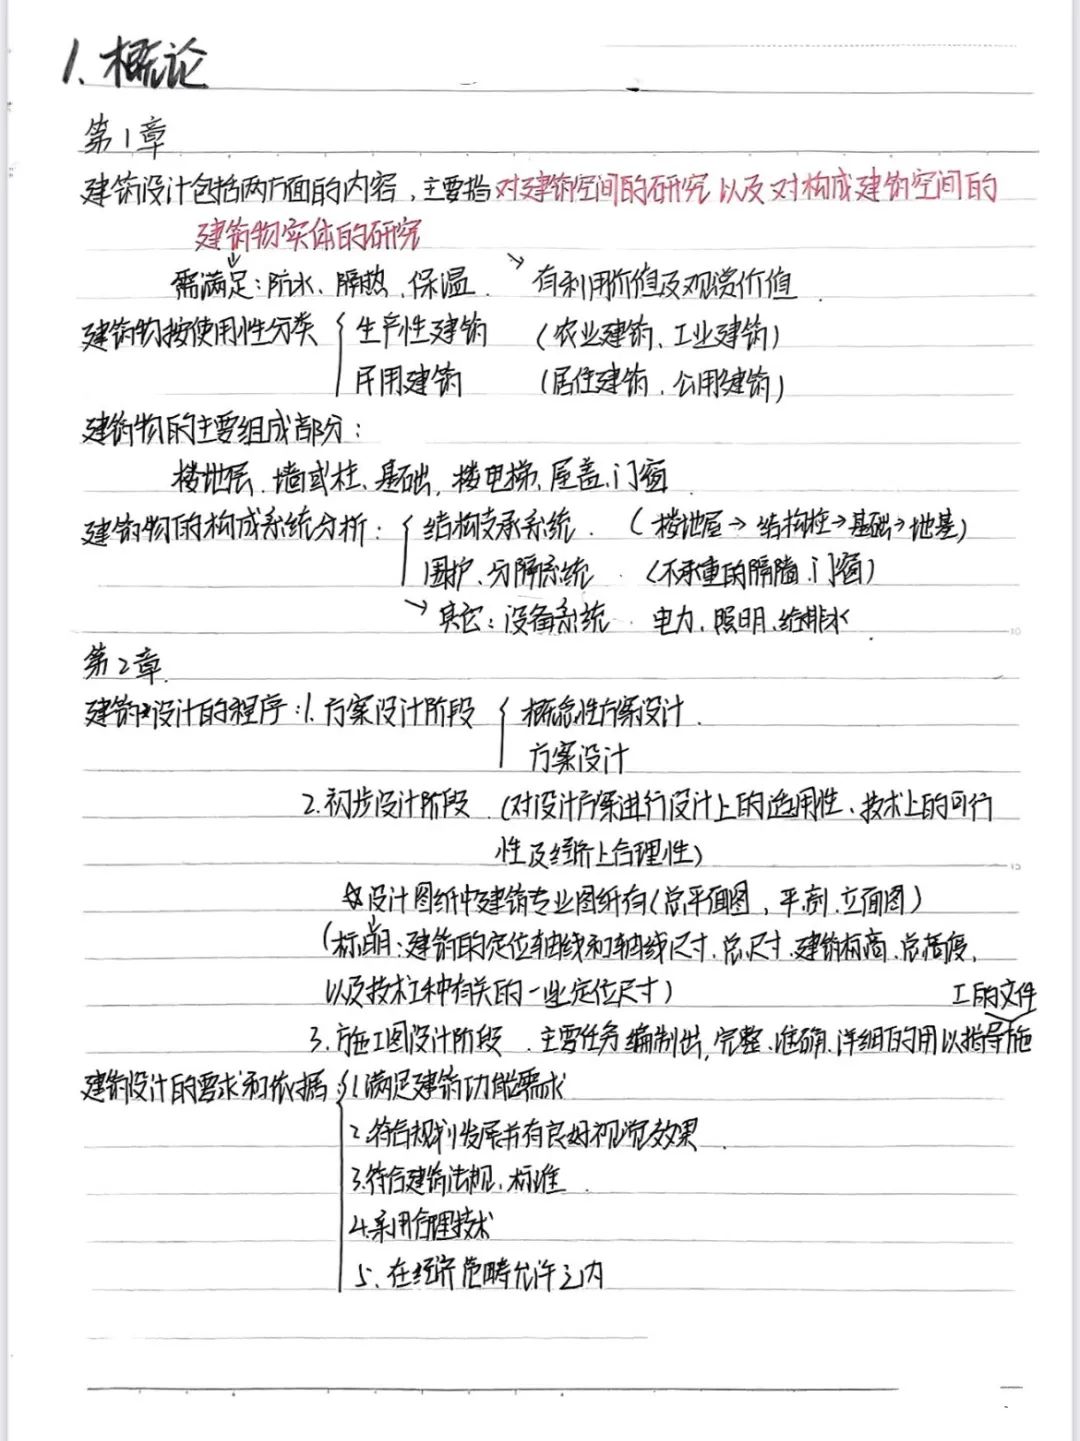 1、概论
第1章
建筑设计包括两方面的内容，主要指对建筑空间的研究以及对构成建筑空间的
建筑物实体的研究
需满足：防水、隔热、保温. → 有利用价值及观赏价值.
建筑物按使用性分类 { 生产性建筑 （农业建筑、工业建筑）
民用建筑 （居住建筑、公用建筑）
建筑物的主要组成部分：
楼地层、墙或柱、基础、楼电梯、屋盖、门窗
建筑物的构成系统分析： { 结构支承系统. （楼地层→结构柱→基础→地基）
围护、分隔系统. （不承重的隔墙、门窗）
→ 其它：设备系统. 电力、照明、给排水.
第2章.
建筑设计的程序：1. 方案设计阶段 { 概念性方案设计.
方案设计
2.初步设计阶段.（对设计方案进行设计上的适用性、技术上的可行
性及经济上合理性）
设计图纸中建筑专业图纸有（总平面图，平、剖、立面图）
（标明：建筑的定位轴线和轴线尺寸、总尺寸、建筑标高、总高度，
以及技术工种有关的一些定位尺寸）
3.施工图设计阶段. 主要任务编制出，完整、准确、详细的用以指导施
工的文件
建筑设计的要求和依据： { 1.满足建筑功能需求
2.符合规划发展并有良好视觉效果.
3.符合建筑法规、标准.
4.采用合理技术
5、在经济范畴允许之内